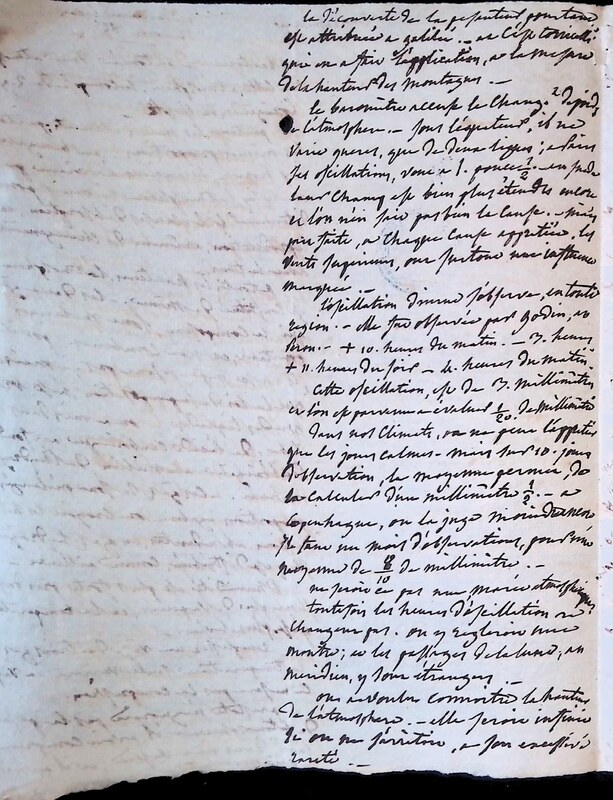 la découverte de la pesanteur
est attribuée a galilée. — et c'est toricelli
qui en a fait l'application, a la mesure
de la hauteur des montagnes. —
le baromètre accuse le chang.t de poids
de l'atmosphere. — sous l'équateur, il ne
varie gueres, que de deux lignes; a Paris
ses oscillations, vont a 1. pouce 1/2 —
leur champ est bien plus étendu encore
et l'on n'en sait pas bien la cause. — mais
par suite, a chaque cause appréciée, les
vents superieurs, ont surtout une influence
marquée. —
l'oscillation diurne s'observe, en toute
region. — elle fut observée par Godin, et
+ 10. heures du matin. — 3. heures
+ 11. heures du soir — 4. heures du matin.
Cette oscillation, est de 3. millimètres
et l'on est parvenu a évaluer 1/20. de millimètre
Dans nos climats, on ne peut l'apprécier
que les jours calmes — mais sur 10. jours
d'observation, la moyenne permet, de
la calculer d'un millimètre 1/2. — a
Copenhague, on la juge moindre encore
il faut un mois d'observations, pour une
moyenne de 8/10 de millimètre. —
ne seroit ce pas une marée atmospherique,
toutefois les heures d'oscillation ne
changent pas. on y regleroit une
montre; et les passages de la lune, au
meridien, y sont étrangers. —
on a voulu connoitre la hauteur
de l'atmosphere. — elle seroit infinie
si on ne s'arrêtoit, a son excessive
rareté. —